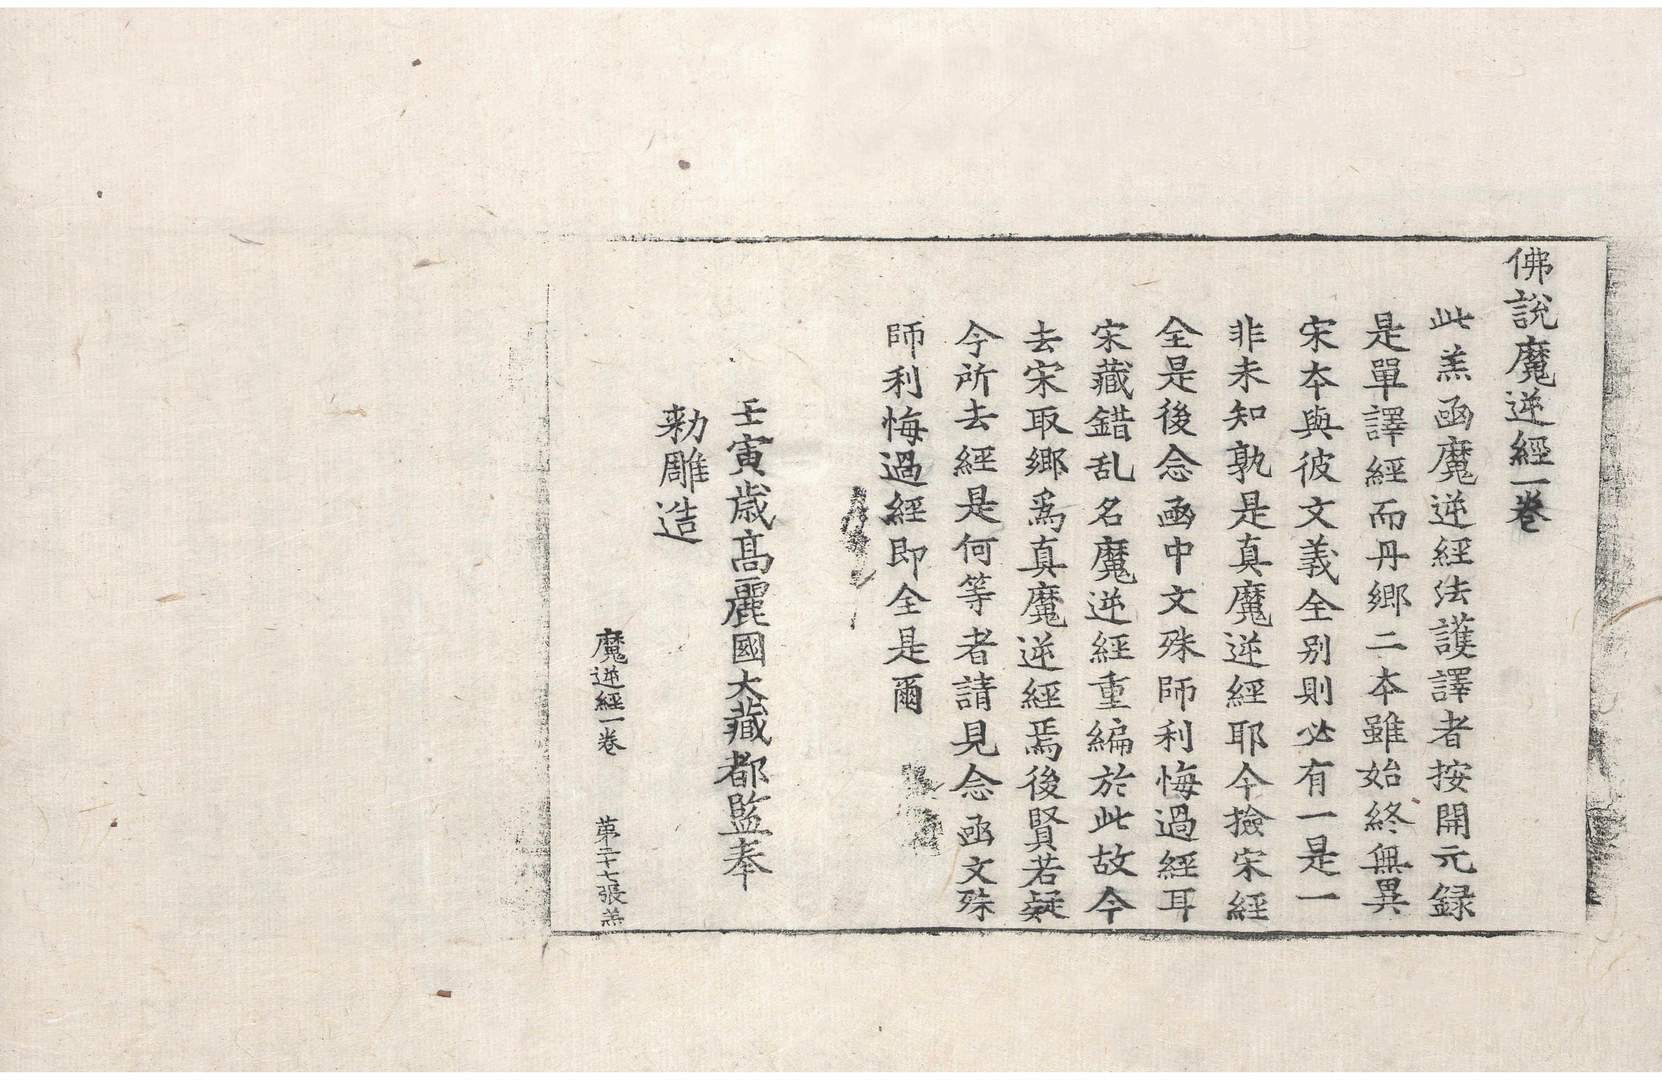 佛說魔逆經一卷
此羔函魔逆經法護譯者按開元録
是單譯經而丹鄉二本雖始終無異
宋本與彼文義全别則必有一是一
非未知孰是真魔逆經耶今撿宋經
全是後念函中文殊師利悔過經耳
宋藏錯乱名魔逆經重編於此故今
去宋取鄉為真魔逆經焉後賢若疑
今所去經是何等者請見念函文殊
師利悔過經即全是爾
壬寅歳髙麗國大藏都監奉
勑雕造
魔逆經一卷 苐二十七張 羔